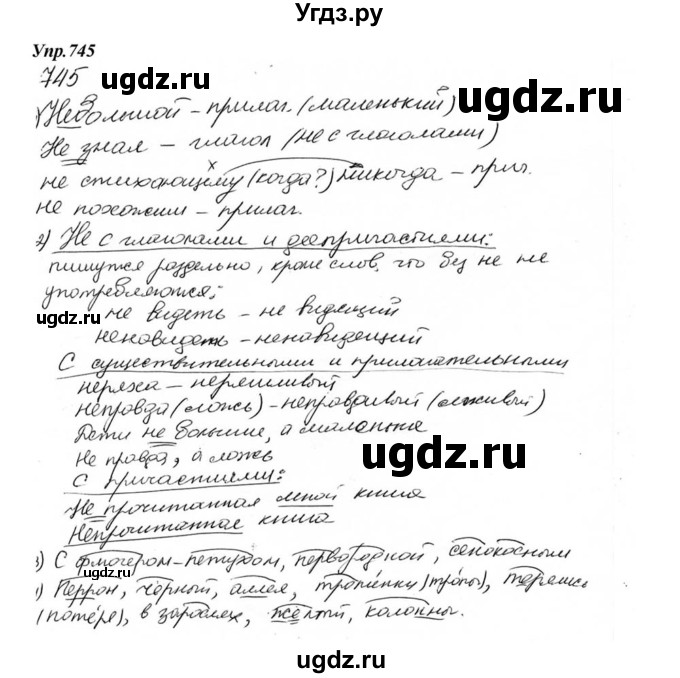 Угдз.ру
Упр.745
745
ugdz.ru
ugdz.ru
1) Небольшой – прилаг. (маленький)
Не знал – глагол (не с глаголами)
не стихающему (когда?) никогда – прич.
не похожим – прилаг.
2) Не с глаголами и деепричастиями:
пишутся раздельно, кроме слов, что без не не
употребляются:
ugdz.ru
не видеть – не видящий
ненавидеть – ненавидящий
С существительными и прилагательными
неряха – неряшливый
неправда (ложь) – неправдивый (лживый)
Дети не большие, а маленькие
Не правда, а ложь
ugdz.ru
С причастиями:
Не прочитанная мной книга
Непрочитанная книга
3) С флюгером-петухом, первогодной, сенокосным
ugdz.ru
Перрон, чёрный, аллея, тропинки (тропы), терялись
(потеря), в зарослях, жёлтый, колонны.
ugdz.ru
ugdz.ru